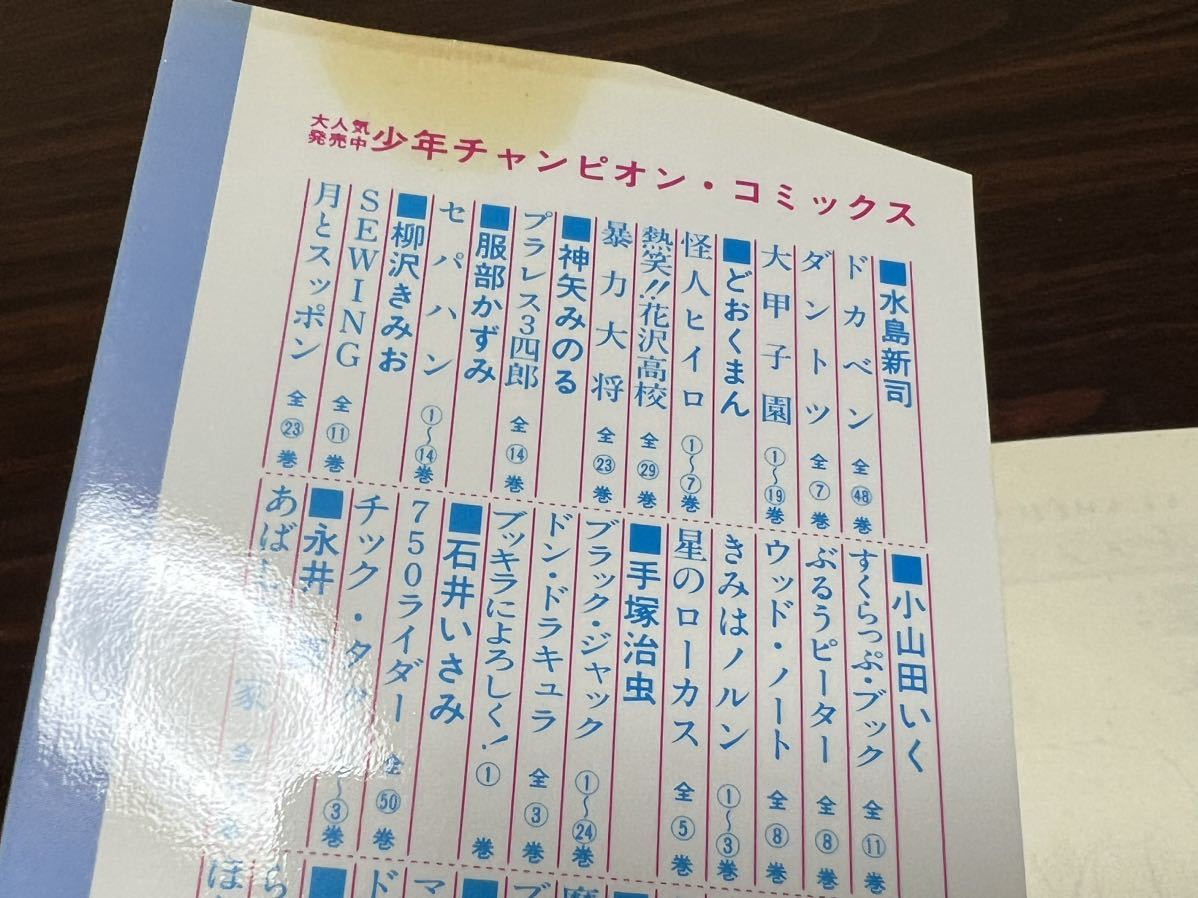 大人気
発売中
少年チャンピオン・コミックス
■水島新司
ドカベン 全㊽巻
ダントツ 全⑦巻
大甲子園 ①〜⑲巻
■どおくまん
怪人ヒイロ ①〜⑦巻
熱笑!!花沢高校 全㉙巻
暴力大将 全㉓巻
■神矢みのる
プラレス3四郎 全⑭巻
■服部かずみ
セパハン ①〜⑭巻
■柳沢きみお
SEWING 全⑪巻
月とスッポン 全㉓巻
■小山田いく
すくらっぷ・ブック 全⑪巻
ぶるうピーター 全⑧巻
ウッド・ノート 全⑧巻
きみはノルン ①〜③巻
星のローカス 全⑤巻
■手塚治虫
ブラック・ジャック ①〜㉔巻
ドン・ドラキュラ 全③巻
ブッキラによろしく! ①巻
■石井いさみ
750ライダー 全㊿巻
チック・タ 〜③巻
■永井
あば 家 全